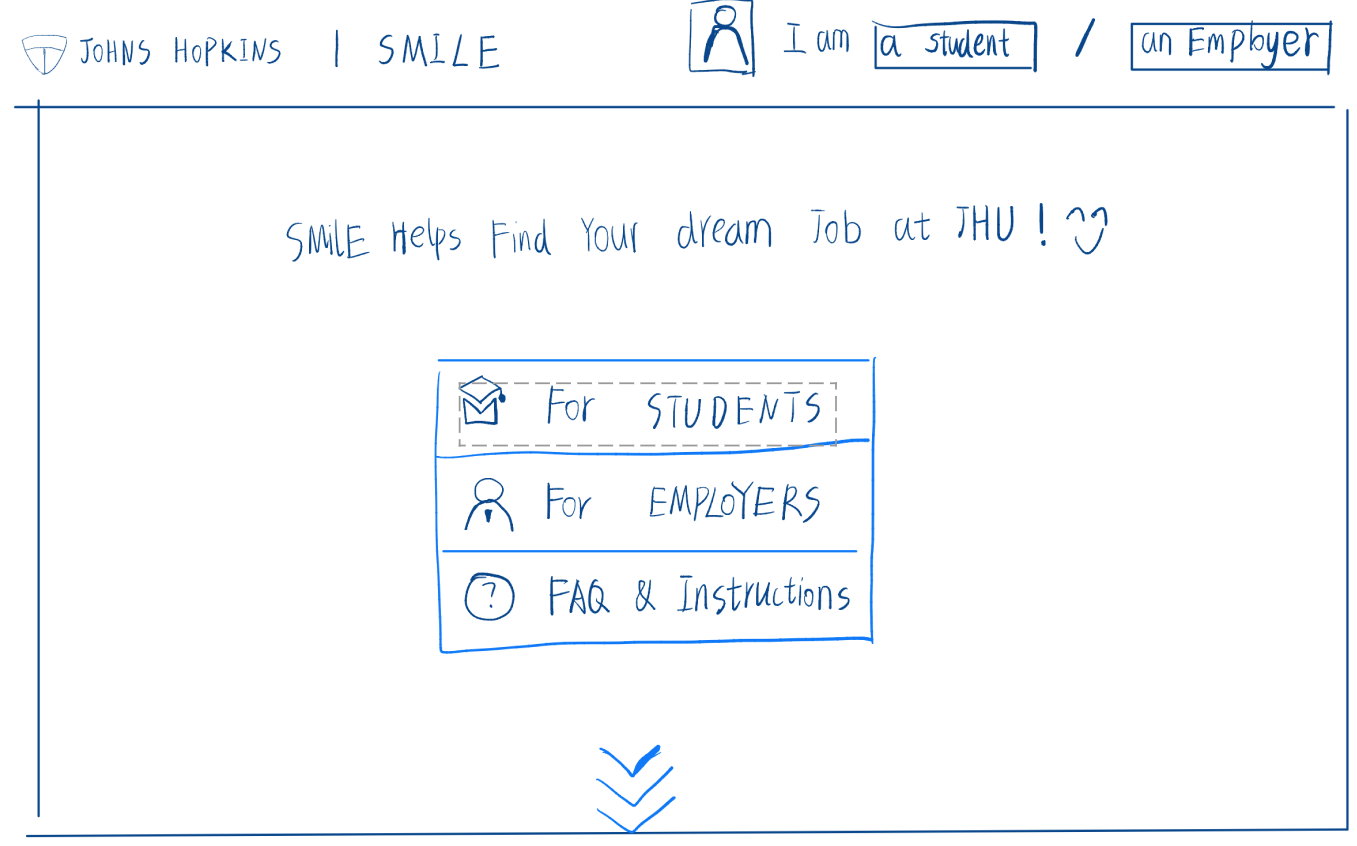 JOHNS HOPKINS | SMILE I am a student / an Employer
SMilE Helps Find Your dream Job at JHU !
For STUDENTS
For EMPLOYERS
? FAQ & Instructions